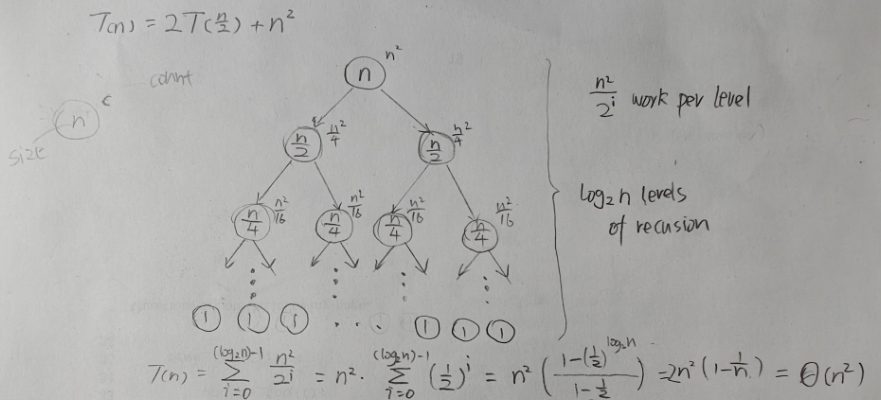 T(n) = 2T(n/2) + n²
count
n c
size
n n²
n/2 n²/4 n/2 n²/4
n/4 n²/16 n/4 n²/16 n/4 n²/16 n/4 n²/16
1 1 1 ... 1 1 1
n²/2^i work per level
log₂n levels
of recusion
T(n) = Σ_{i=0}^{(log₂n)-1} n²/2^i = n² · Σ_{i=0}^{(log₂n)-1} (1/2)^i = n² ( (1-(1/2)^{log₂n}) / (1-1/2) ) = 2n² (1-1/n) = Θ(n²)